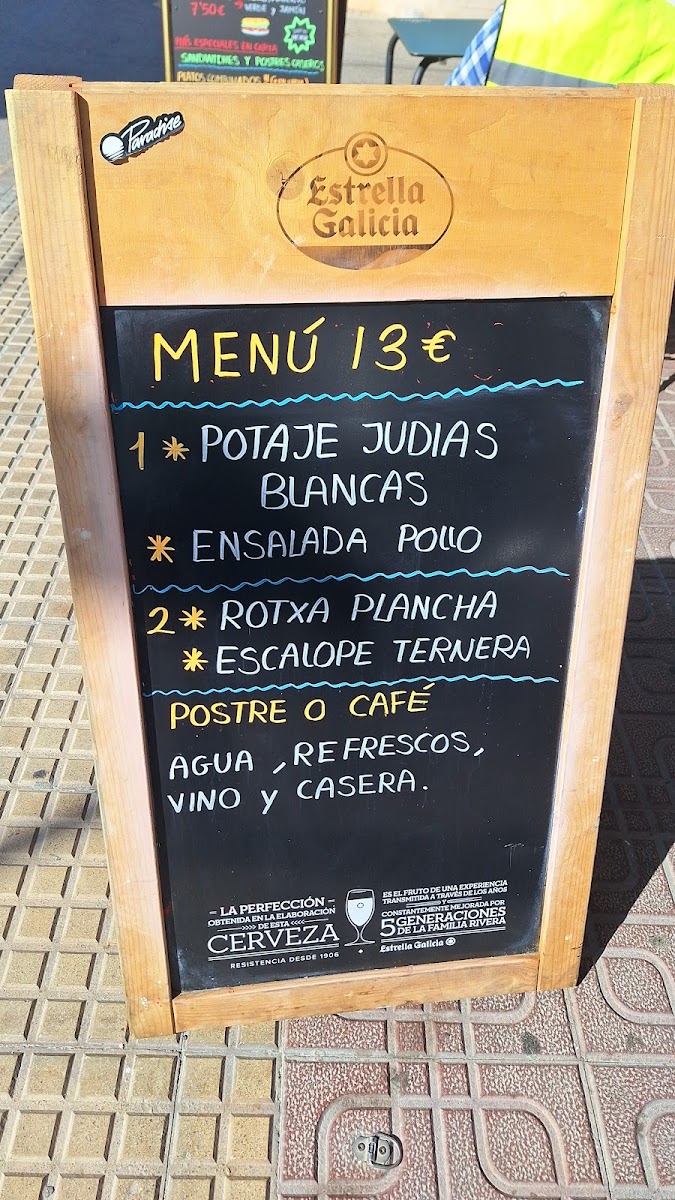 7'50€
VERDE Y JAMÓN
MÁS ESPECIALES EN CARTA
SANDWICHES Y POSTRES CASEROS
PLATOS COMBINADOS
Paradise
Estrella
Galicia
MENÚ 13€
1 * POTAJE JUDIAS
BLANCAS
* ENSALADA POLLO
2 * ROTXA PLANCHA
* ESCALOPE TERNERA
POSTRE O CAFÉ
AGUA, REFRESCOS,
VINO Y CASERA.
– LA PERFECCIÓN –
OBTENIDA EN LA ELABORACIÓN
>>>> DE ESTA <<<<
CERVEZA
RESISTENCIA DESDE 1906
ES EL FRUTO DE UNA EXPERIENCIA
TRANSMITIDA A TRAVÉS DE LOS AÑOS
Y
CONSTANTEMENTE MEJORADA POR
5 GENERACIONES
DE LA FAMILIA RIVERA
Estrella Galicia